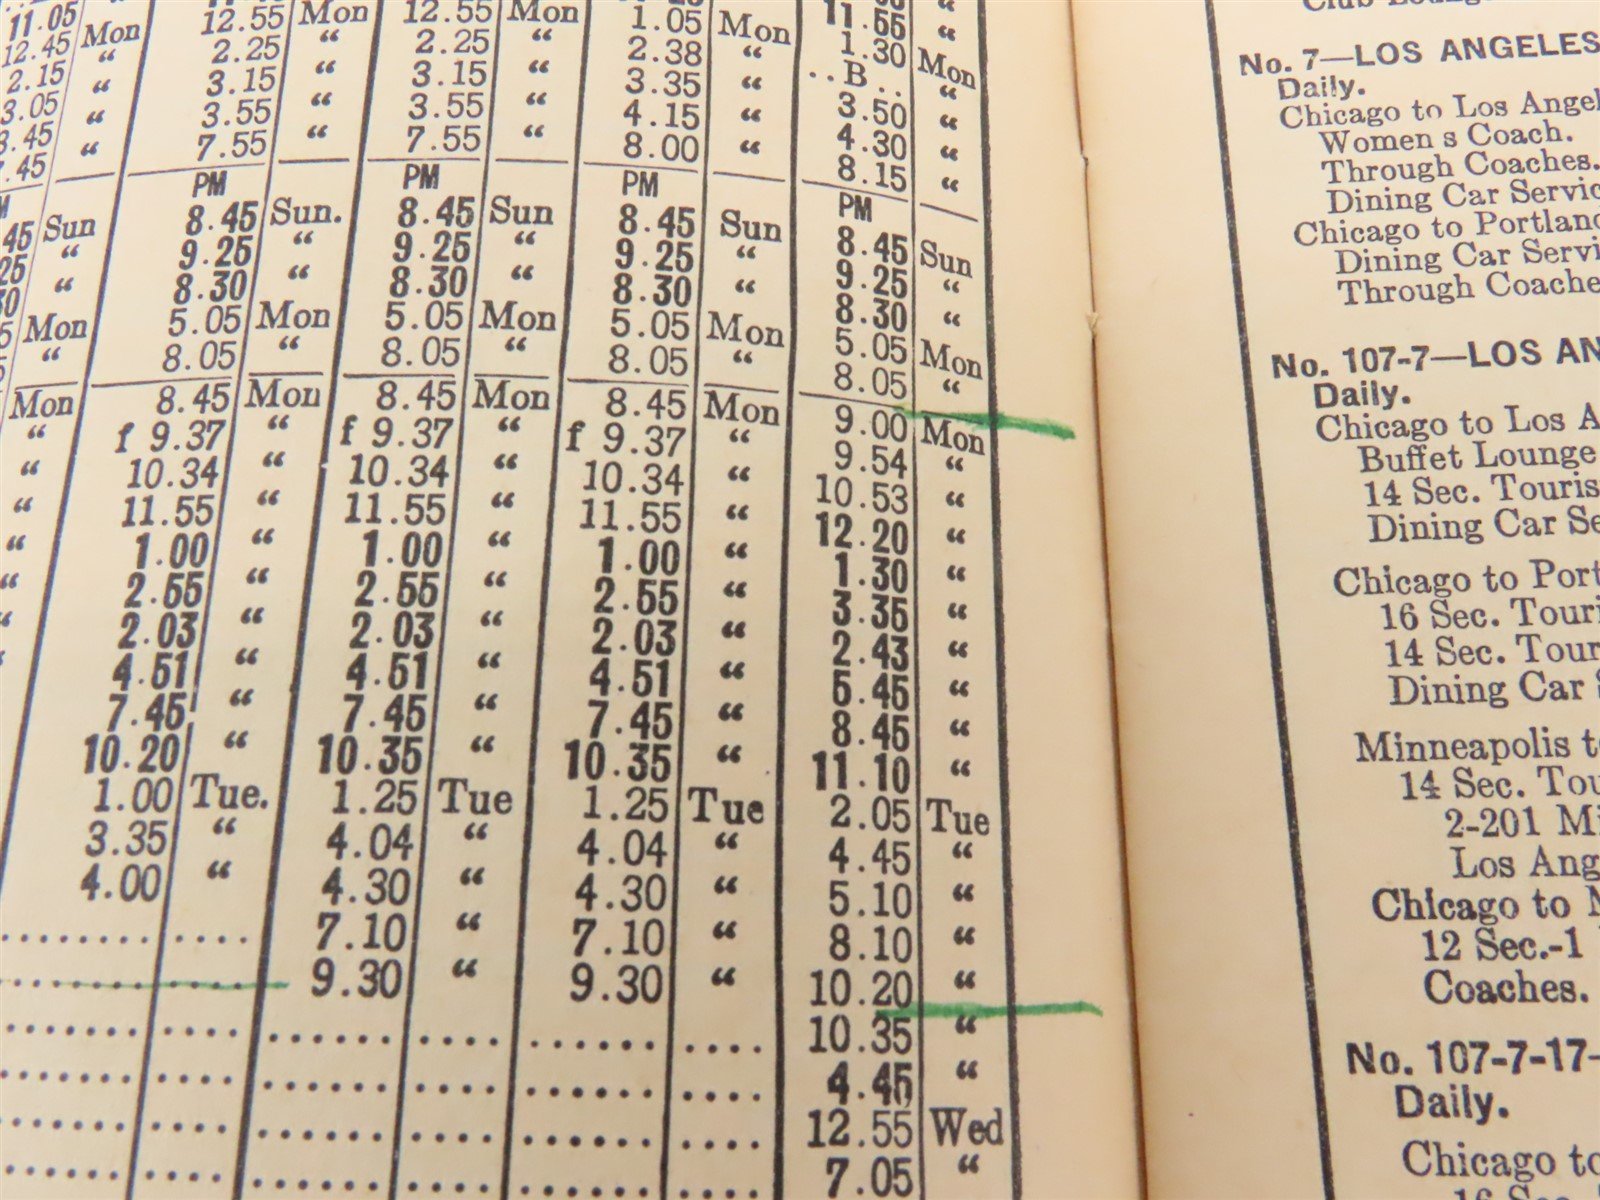 11.05 12.55 Mon 12.55 Mon 1.05 Mon 11.55 “
12.45 Mon 2.25 “ 2.25 “ 2.38 “ 1.30 Mon
2.15 “ 3.15 “ 3.15 “ 3.35 “ ..B.. “
3.05 “ 3.55 “ 3.55 “ 4.15 “ 3.50 “
3.45 “ 7.55 “ 7.55 “ 8.00 “ 4.30 “
7.45 “ 8.15 “
PM PM PM PM
45 Sun 8.45 Sun. 8.45 Sun 8.45 Sun 8.45 Sun
25 “ 9.25 “ 9.25 “ 9.25 “ 9.25 “
30 “ 8.30 “ 8.30 “ 8.30 “ 8.30 “
5 Mon 5.05 Mon 5.05 Mon 5.05 Mon 5.05 Mon
“ 8.05 “ 8.05 “ 8.05 “ 8.05 “
Mon 8.45 Mon 8.45 Mon 8.45 Mon 9.00 Mon
“ f 9.37 “ f 9.37 “ f 9.37 “ 9.54 “
“ 10.34 “ 10.34 “ 10.34 “ 10.53 “
“ 11.55 “ 11.55 “ 11.55 “ 12.20 “
“ 1.00 “ 1.00 “ 1.00 “ 1.30 “
“ 2.55 “ 2.55 “ 2.55 “ 3.35 “
“ 2.03 “ 2.03 “ 2.03 “ 2.43 “
4.51 “ 4.51 “ 4.51 “ 5.45 “
7.45 “ 7.45 “ 7.45 “ 8.45 “
10.20 “ 10.35 “ 10.35 “ 11.10 “
1.00 Tue. 1.25 Tue 1.25 Tue 2.05 Tue
3.35 “ 4.04 “ 4.04 “ 4.45 “
4.00 “ 4.30 “ 4.30 “ 5.10 “
........ .... 7.10 “ 7.10 “ 8.10 “
........ .... 9.30 “ 9.30 “ 10.20 “
....... .... ...... .... ...... .... 10.35 “
....... .... ...... .... ...... .... 4.45 “
....... .... ...... .... ...... .... 12.55 Wed
....... .... ...... .... ...... .... 7.05 “
No. 7—LOS ANGELES
Daily.
Chicago to Los Angel
Women s Coach.
Through Coaches.
Dining Car Servic
Chicago to Portland
Dining Car Servi
Through Coache
No. 107-7—LOS AN
Daily.
Chicago to Los A
Buffet Lounge
14 Sec. Touris
Dining Car Se
Chicago to Port
16 Sec. Touri
14 Sec. Tour
Dining Car
Minneapolis t
14 Sec. Tou
2-201 Mi
Los Ang
Chicago to
12 Sec.-1
Coaches.
No. 107-7-17-
Daily.
Chicago to